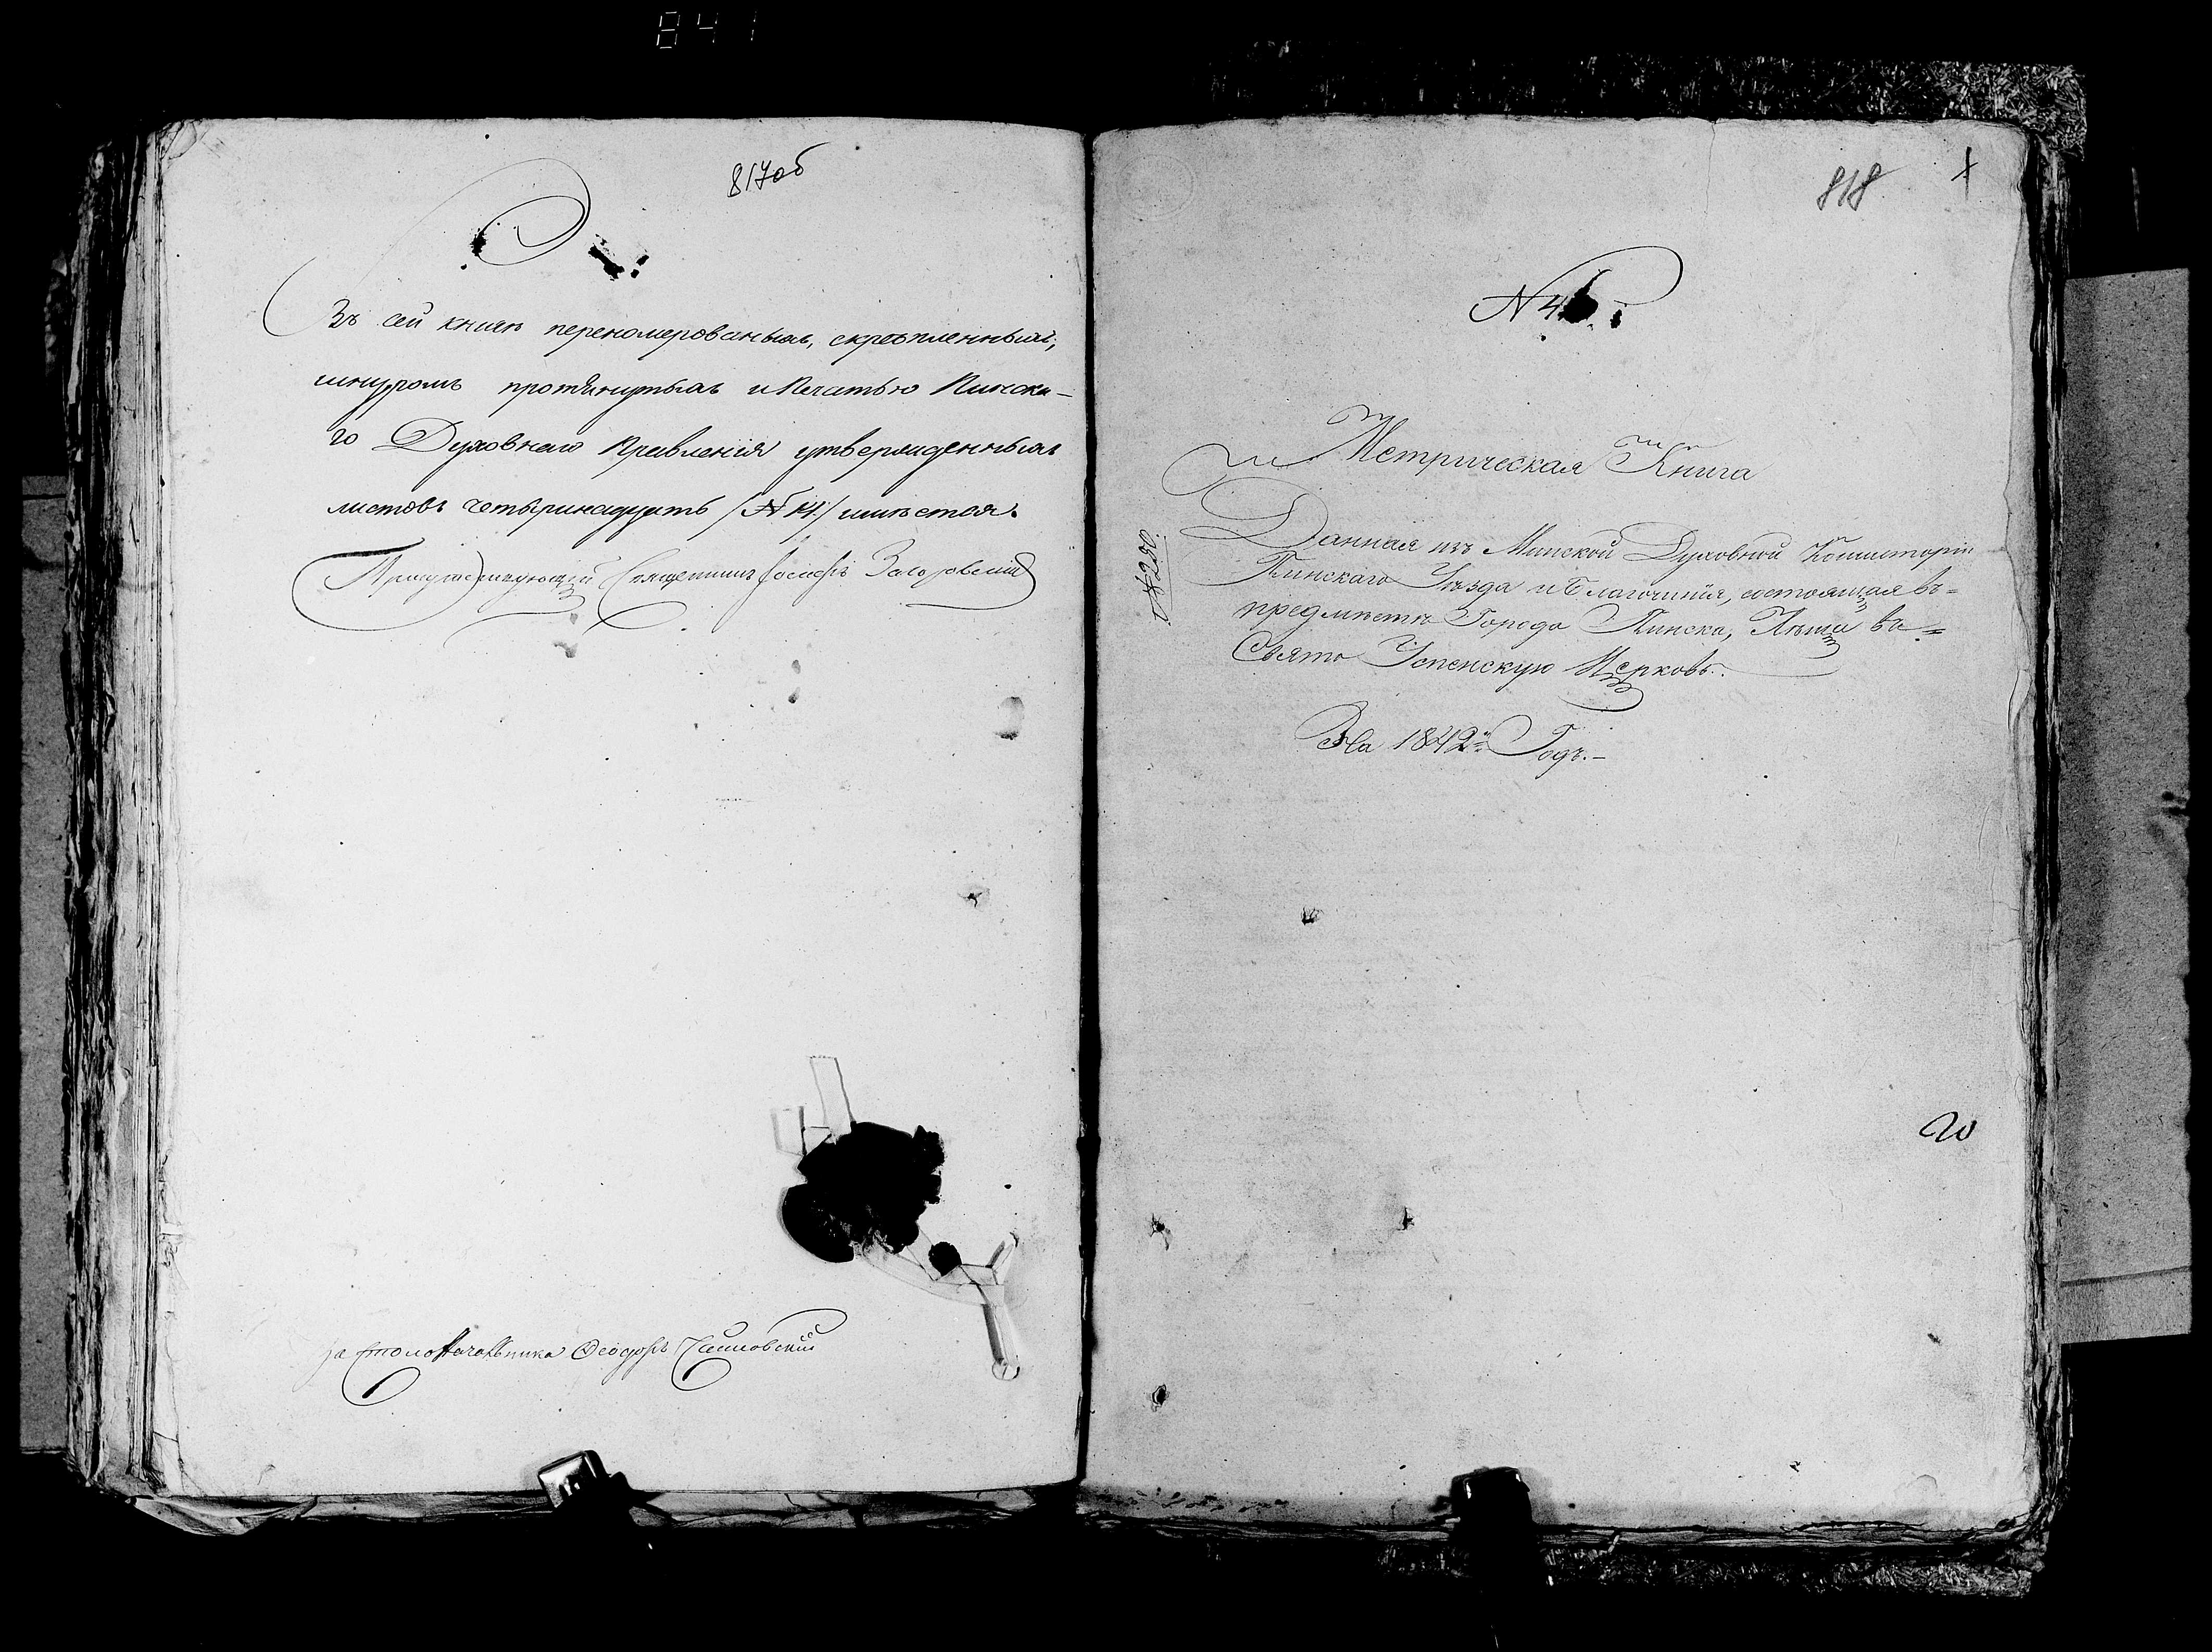 841
817об
Въ сей книгѣ перенумерованныхъ, скрѣпленныхъ,
шнуромъ протянутыхъ и печатью Пинска-
го Духовнаго Правленія утвержденныхъ
листовъ четырнадцать /№ 14./ имѣется.
Присутствующій Священникъ Іосифъ Загоровскій
за Столоначальника Ѳеодоръ
818
1
№ 46.
Метрическая Книга
№ 230.
Данная изъ Минской Духовной Консисторіи
Пинскаго Уѣзда и Благочинія, состоящая въ=
предмѣстѣ Города Пинска, Лѣща въ=
Свято Успенскую Церковь.
На 1842й Годъ.-
20